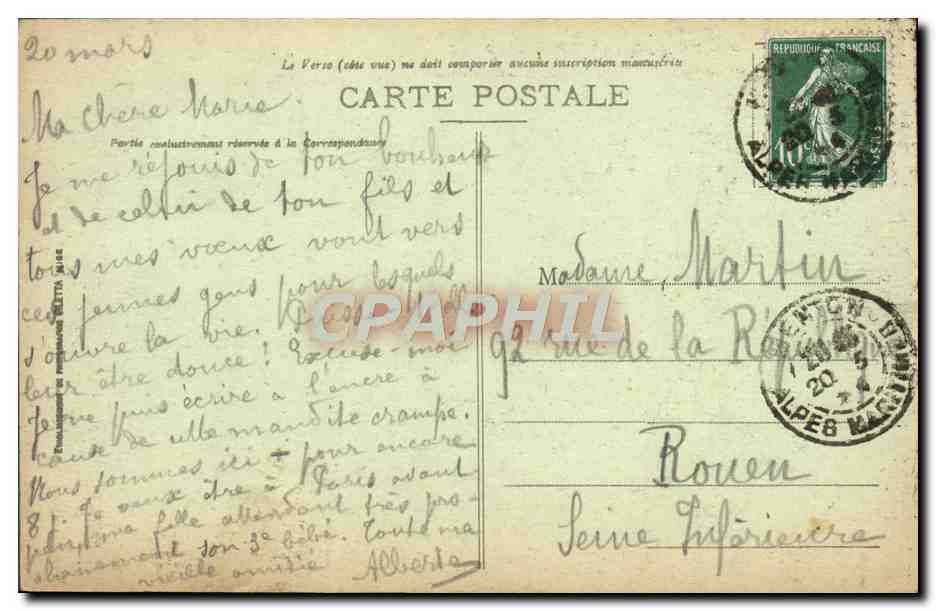 20 mars
Ma chère Marie.
Je me réjouis de ton bonheur
et de celui de ton fils et
tous mes vœux vont vers
ces jeunes gens pour lesquels
s'ouvre la vie. Puisse-t-elle
leur être douce! Excuse-moi
je ne puis écrire à l'encre à
cause de cette maudite crampe.
Nous sommes ici pour encore
8 j. Je veux être à Paris avant
ma fille attendant très pro-
chainement son 3e bébé. Toute ma
vieille amitié Alberte
Le Verso (côté vue) ne doit comporter aucune inscription manuscrite
CARTE POSTALE
Partie exclusivement réservée à la Correspondance
ÉTABLISSEMENT DE PHOTOGRAPHIE GILETTA NICE
CPAPHIL
REPUBLIQUE FRANÇAISE
10
POSTES
ALPES MAR
Madame Martin
92 rue de la République
Rouen
Seine Inférieure
MENTON
20
ALPES MARITIMES